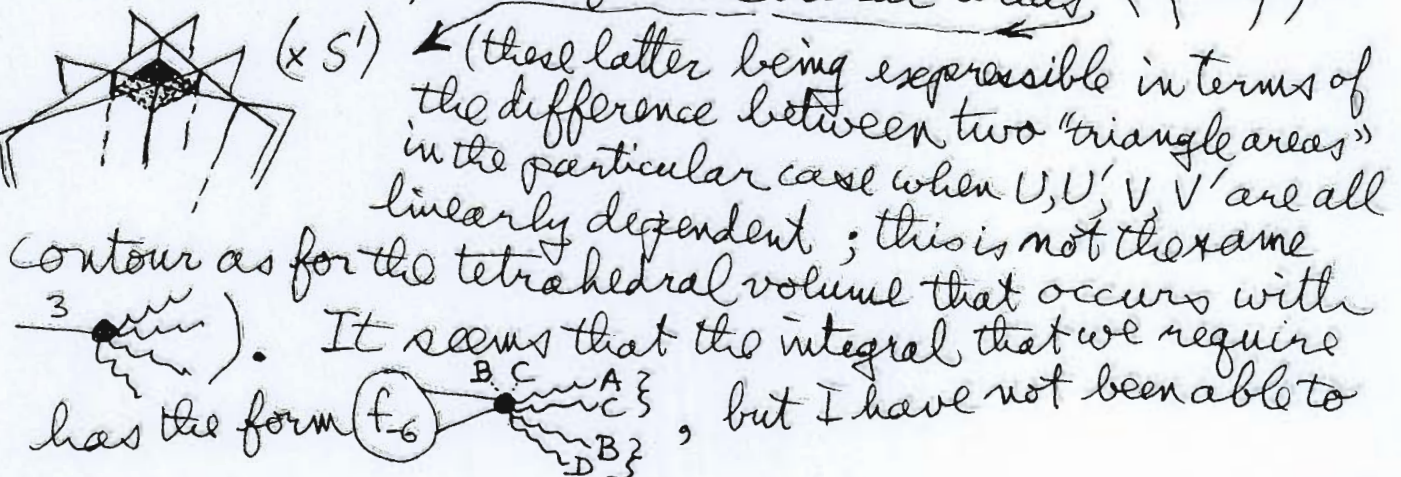 (× S¹) (these latter being expressible in terms of
the difference between two "triangle areas"
in the particular case when U, U', V, V' are all
linearly dependent ; this is not the same
contour as for the tetrahedral volume that occurs with
3 ). It seems that the integral that we require
B C A C
has the form f₋₆ , but I have not been able to
B D